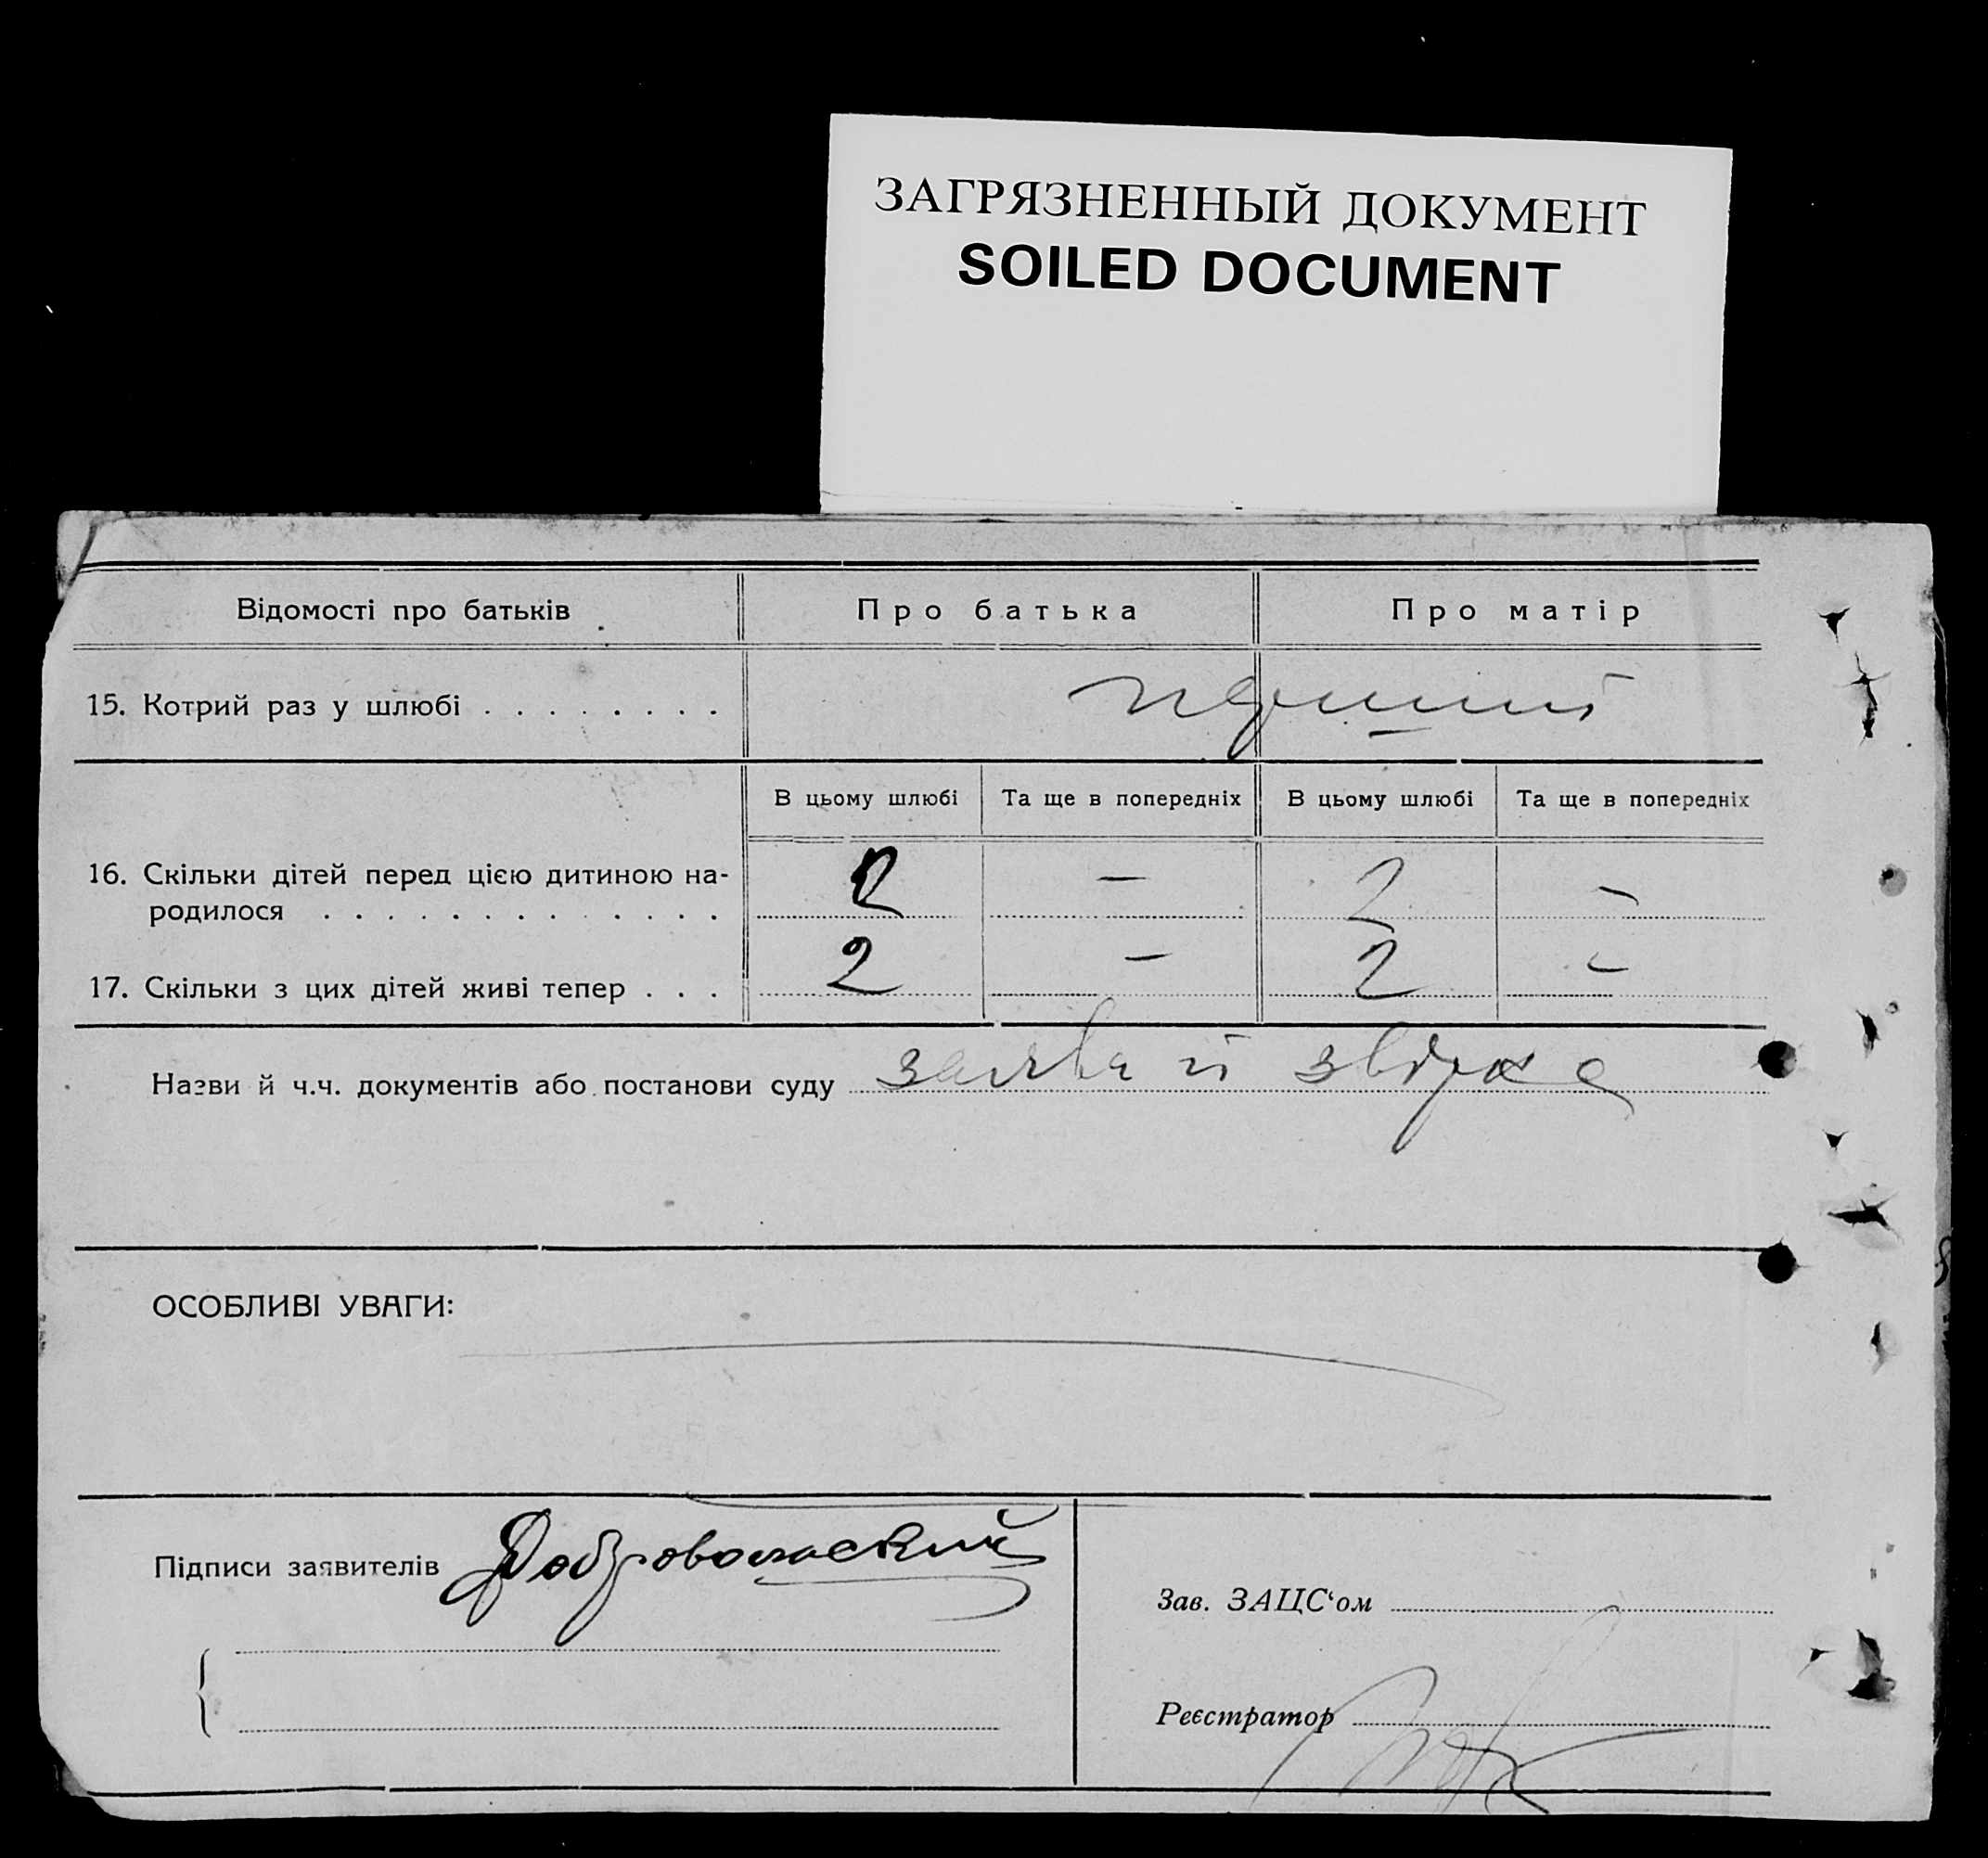 ЗАГРЯЗНЕННЫЙ ДОКУМЕНТ
SOILED DOCUMENT
Відомості про батьків
Про батька
Про матір
15. Котрий раз у шлюбі . . . . . . . .
перший
В цьому шлюбі
Та ще в попередніх
В цьому шлюбі
Та ще в попередніх
16. Скільки дітей перед цією дитиною на-
родилося . . . . . . . . . . . . .
2 — 2 —
17. Скільки з цих дітей живі тепер . . .
2 — 2 —
Назви й ч.ч. документів або постанови суду заява й звірка
ОСОБЛИВІ УВАГИ:
Підписи заявителів Добровольский
Зав. ЗАЦС'ом
Реєстратор